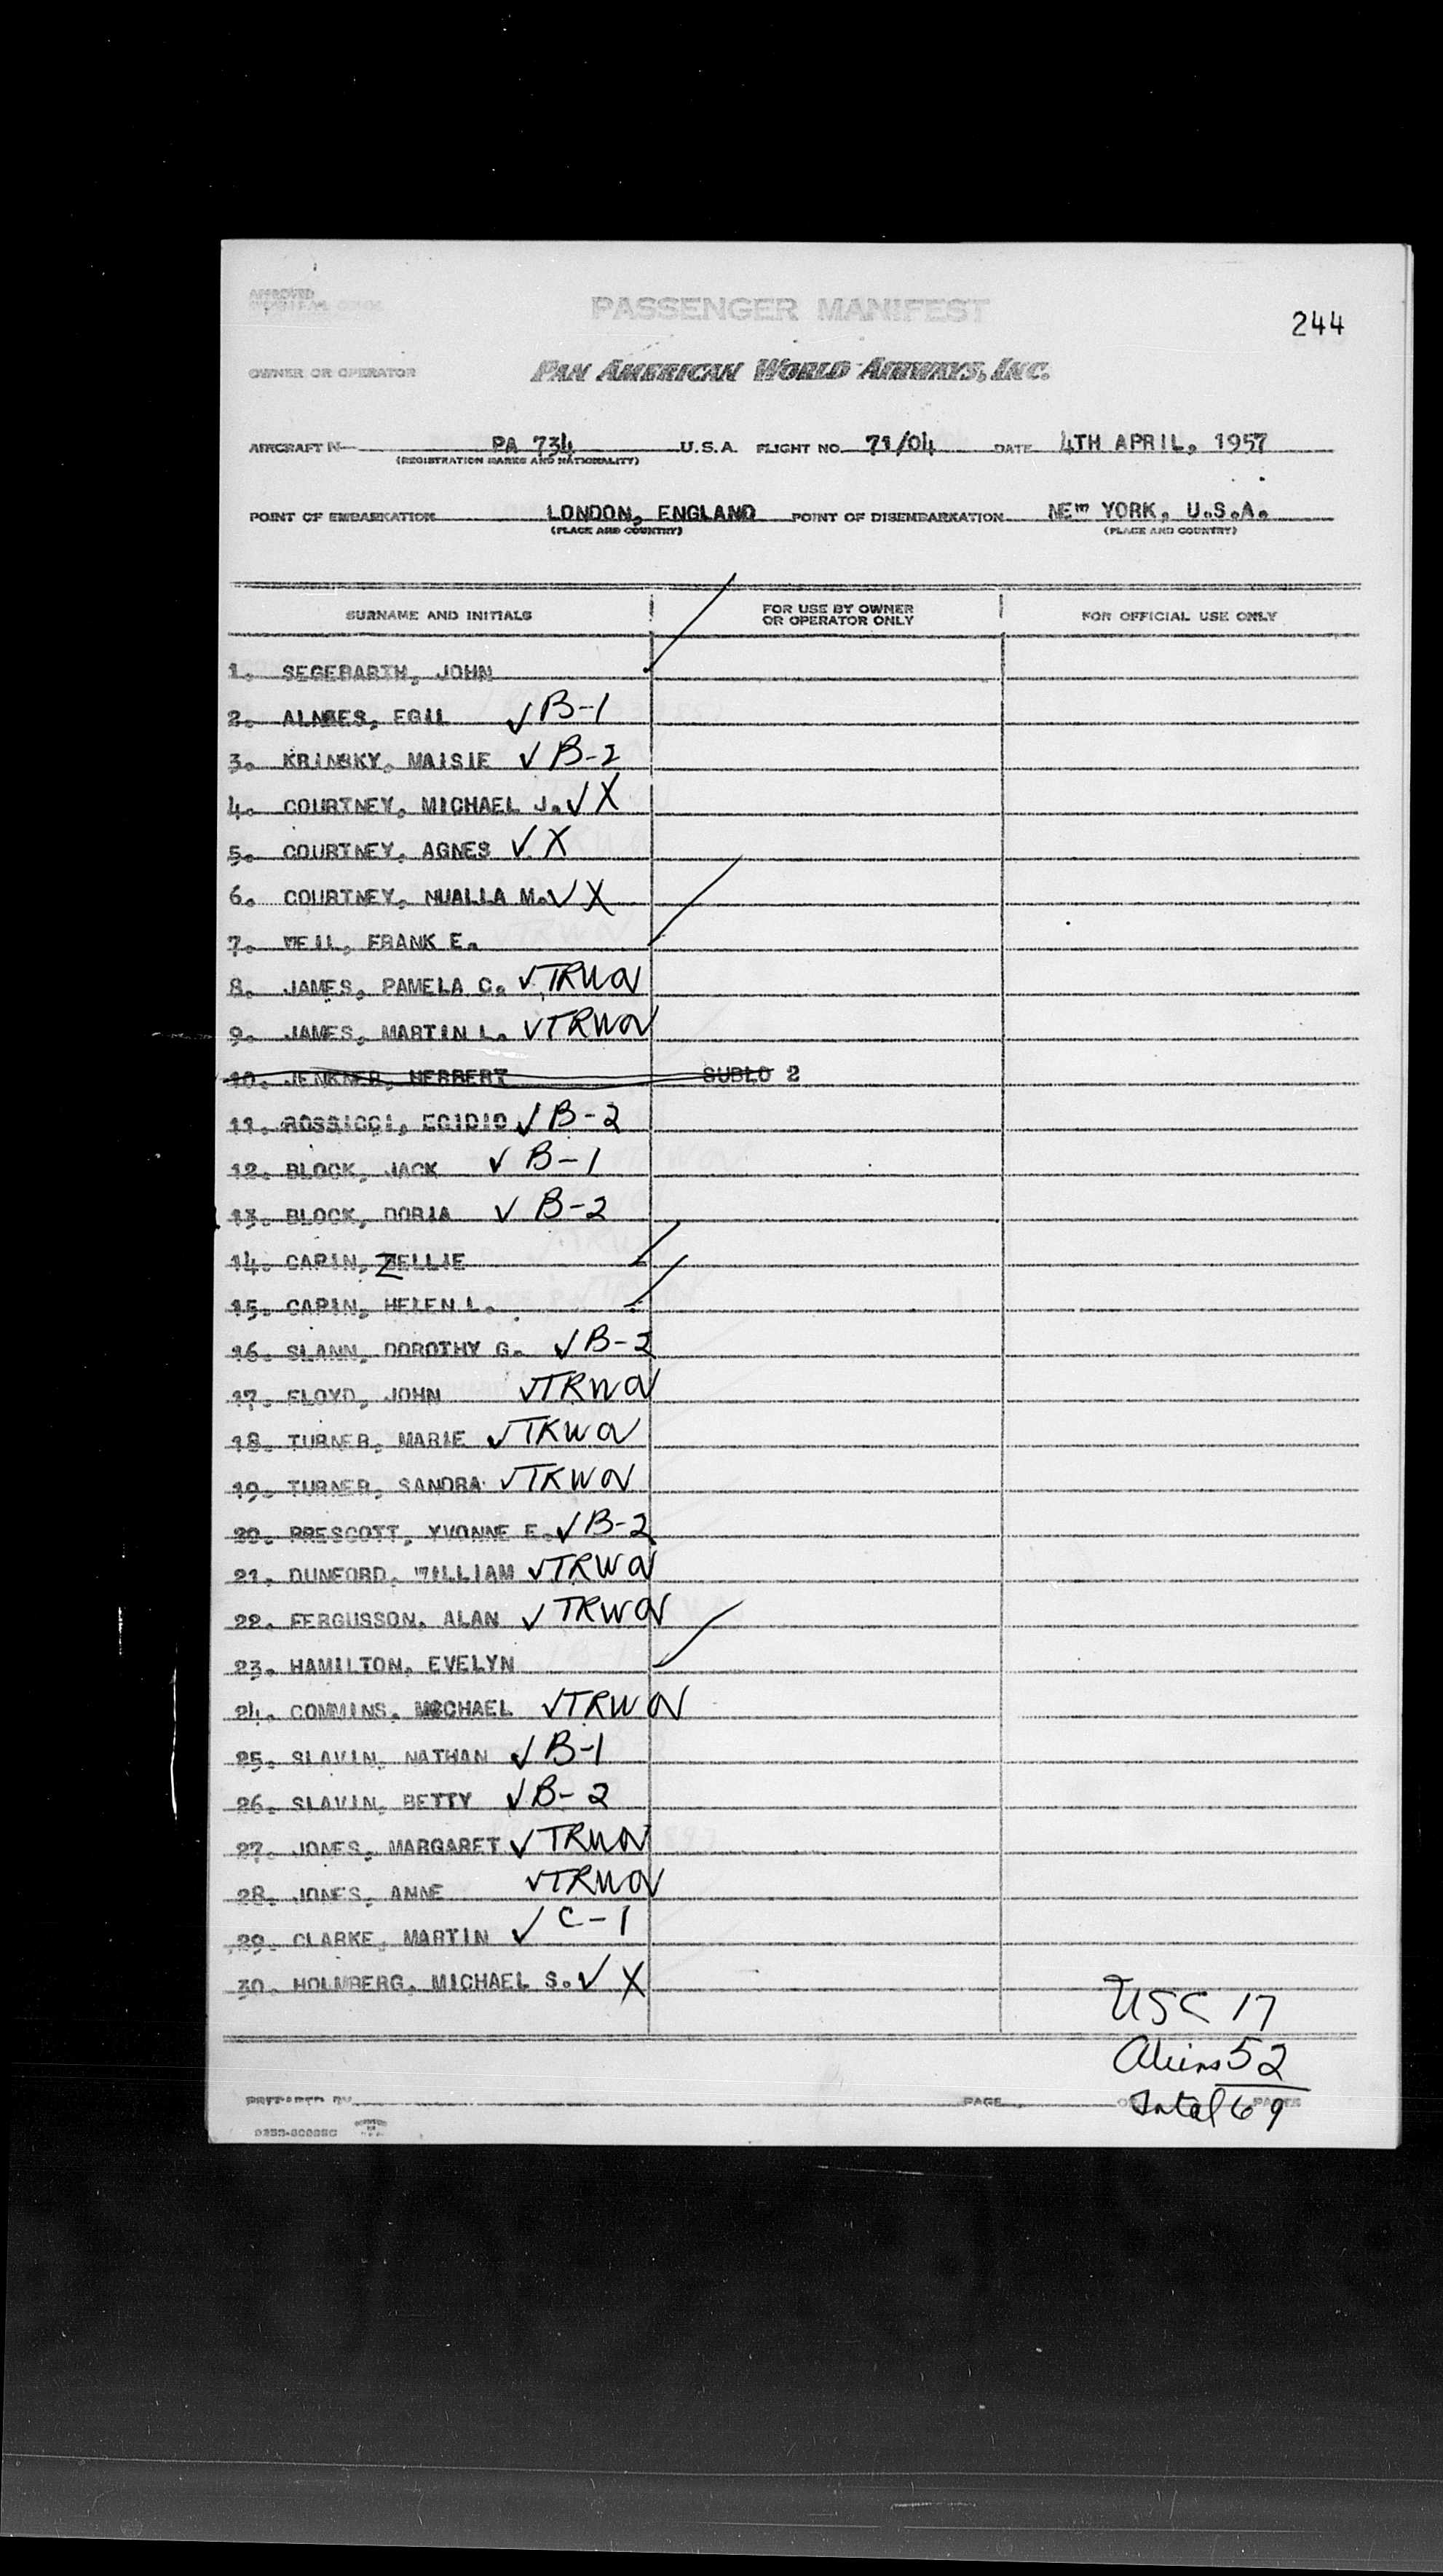 APPROVED
PASSENGER MANIFEST
244
OWNER OR OPERATOR PAN AMERICAN WORLD AIRWAYS, INC.
AIRCRAFT N PA 734 U.S.A. FLIGHT NO. 71/04 DATE 4TH APRIL, 1957
(REGISTRATION MARKS AND NATIONALITY)
POINT OF EMBARKATION LONDON, ENGLAND POINT OF DISEMBARKATION NEW YORK, U.S.A.
(PLACE AND COUNTRY) (PLACE AND COUNTRY)
SURNAME AND INITIALS FOR USE BY OWNER OR OPERATOR ONLY FOR OFFICIAL USE ONLY
1. SEGEBARTH, JOHN
2. ALNAES, EGIL ✓ B-1
3. KRINSKY, MAISIE ✓ B-2
4. COURTNEY, MICHAEL J. ✓ X
5. COURTNEY, AGNES ✓ X
6. COURTNEY, NUALLA M. ✓ X
7. WEIL, FRANK E.
8. JAMES, PAMELA C. ✓ TRWOV
9. JAMES, MARTIN L. ✓ TRWOV
10. JENKNER, HERBERT SUBLO 2
11. ROSSICCI, EGIDIO ✓ B-2
12. BLOCK, JACK ✓ B-1
13. BLOCK, DORIA ✓ B-2
14. CAPIN, ZELLIE
15. CAPIN, HELEN L.
16. SLANN, DOROTHY G. ✓ B-2
17. FLOYD, JOHN ✓ TRWOV
18. TURNER, MARIE ✓ TRWOV
19. TURNER, SANDRA ✓ TRWOV
20. PRESCOTT, YVONNE E. ✓ B-2
21. DUNFORD, WILLIAM ✓ TRWOV
22. FERGUSSON, ALAN ✓ TRWOV
23. HAMILTON, EVELYN
24. COMMINS, MICHAEL ✓ TRWOV
25. SLAVIN, NATHAN ✓ B-1
26. SLAVIN, BETTY ✓ B-2
27. JONES, MARGARET ✓ TRWOV
28. JONES, ANNE ✓ TRWOV
29. CLARKE, MARTIN ✓ C-1
30. HOLMBERG, MICHAEL S. ✓ X
USC 17
Aliens 52
PREPARED BY PAGE OF PAGES
Total 69